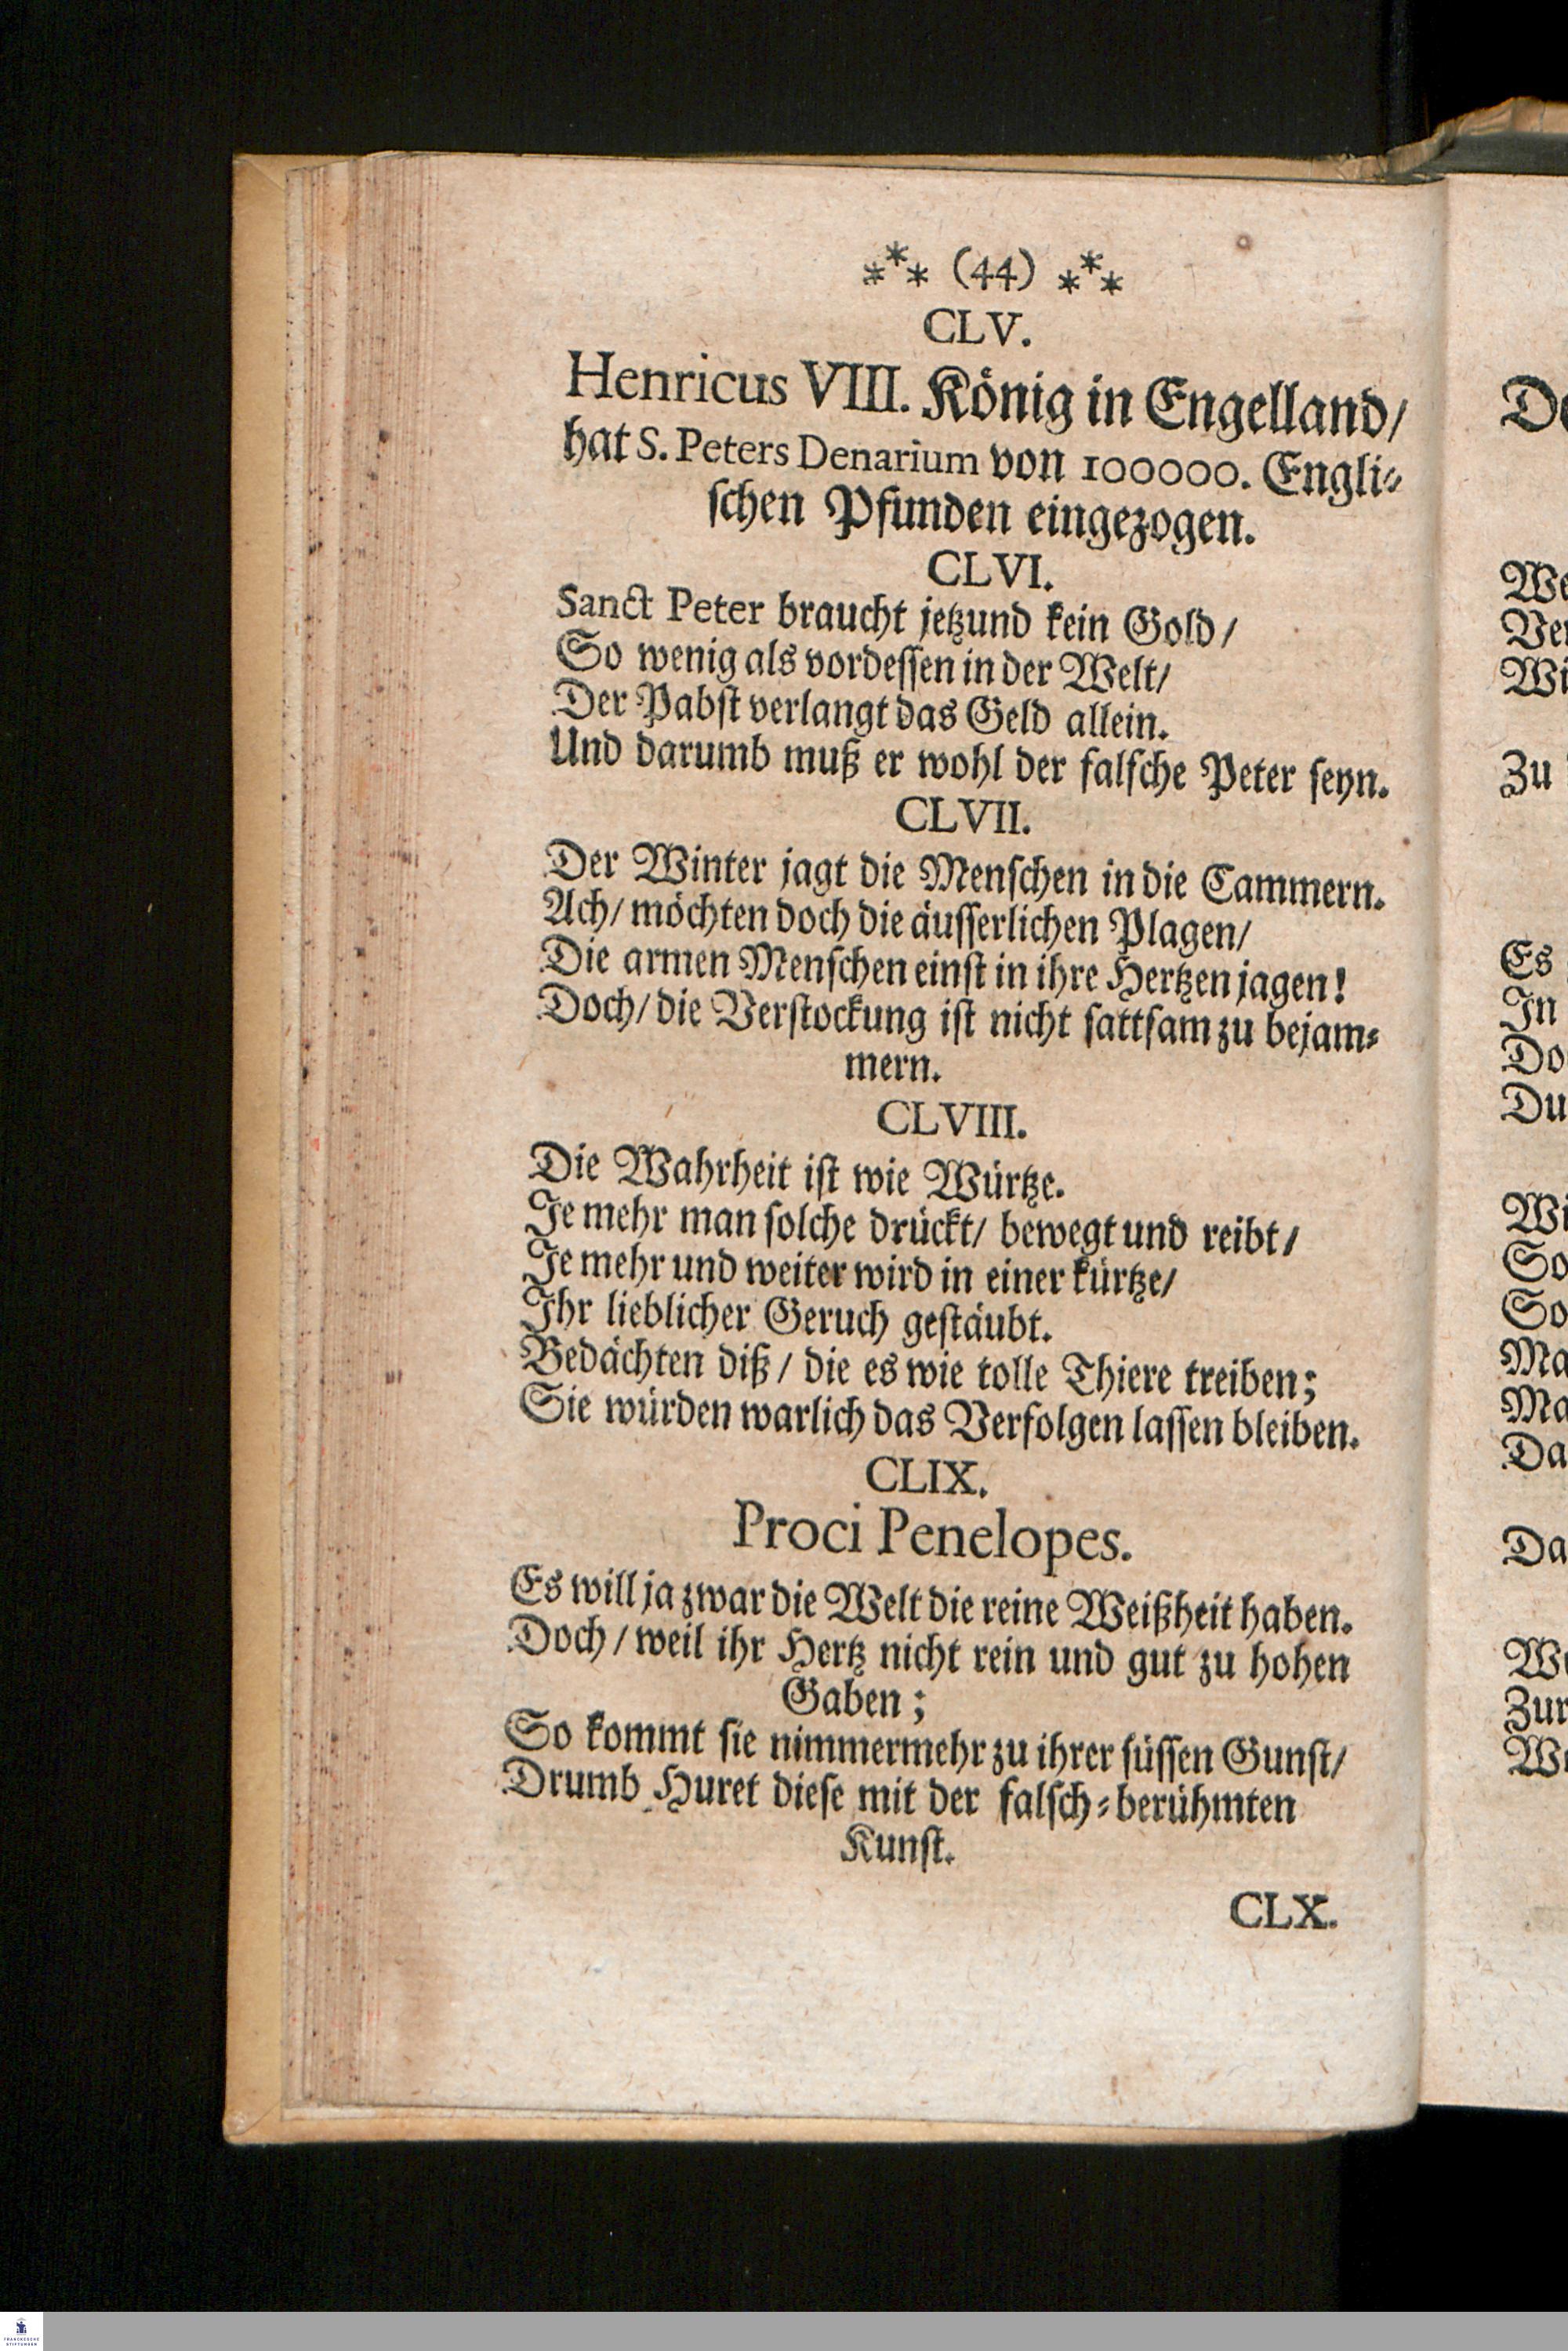 ⁂ (44) ⁂
CLV.
Henricus VIII. König in Engelland/
hat S. Peters Denarium von 100000. Engli-
schen Pfunden eingezogen.
CLVI.
Sanct Peter braucht jetzund kein Gold/
So wenig als vordessen in der Welt/
Der Pabst verlangt das Geld allein.
Und darumb muß er wohl der falsche Peter seyn.
CLVII.
Der Winter jagt die Menschen in die Cammern.
Ach/ möchten doch die äusserlichen Plagen/
Die armen Menschen einst in ihre Hertzen jagen!
Doch/ die Verstockung ist nicht sattsam zu bejam-
mern.
CLVIII.
Die Wahrheit ist wie Würtze.
Je mehr man solche drückt/ bewegt und reibt/
Je mehr und weiter wird in einer kürtze/
Ihr lieblicher Geruch gestäubt.
Bedächten diß/ die es wie tolle Thiere treiben;
Sie würden warlich das Verfolgen lassen bleiben.
CLIX.
Proci Penelopes.
Es will ja zwar die Welt die reine Weißheit haben.
Doch/ weil ihr Hertz nicht rein und gut zu hohen
Gaben;
So kommt sie nimmermehr zu ihrer süssen Gunst/
Drumb Huret diese mit der falsch-berühmten
Kunst.
CLX.
We
Wi
Zu
Es
In
Do
Du
Wi
So
So
Ma
Ma
Da
Da
Zur
FRANCKESCHE
STIFTUNGEN